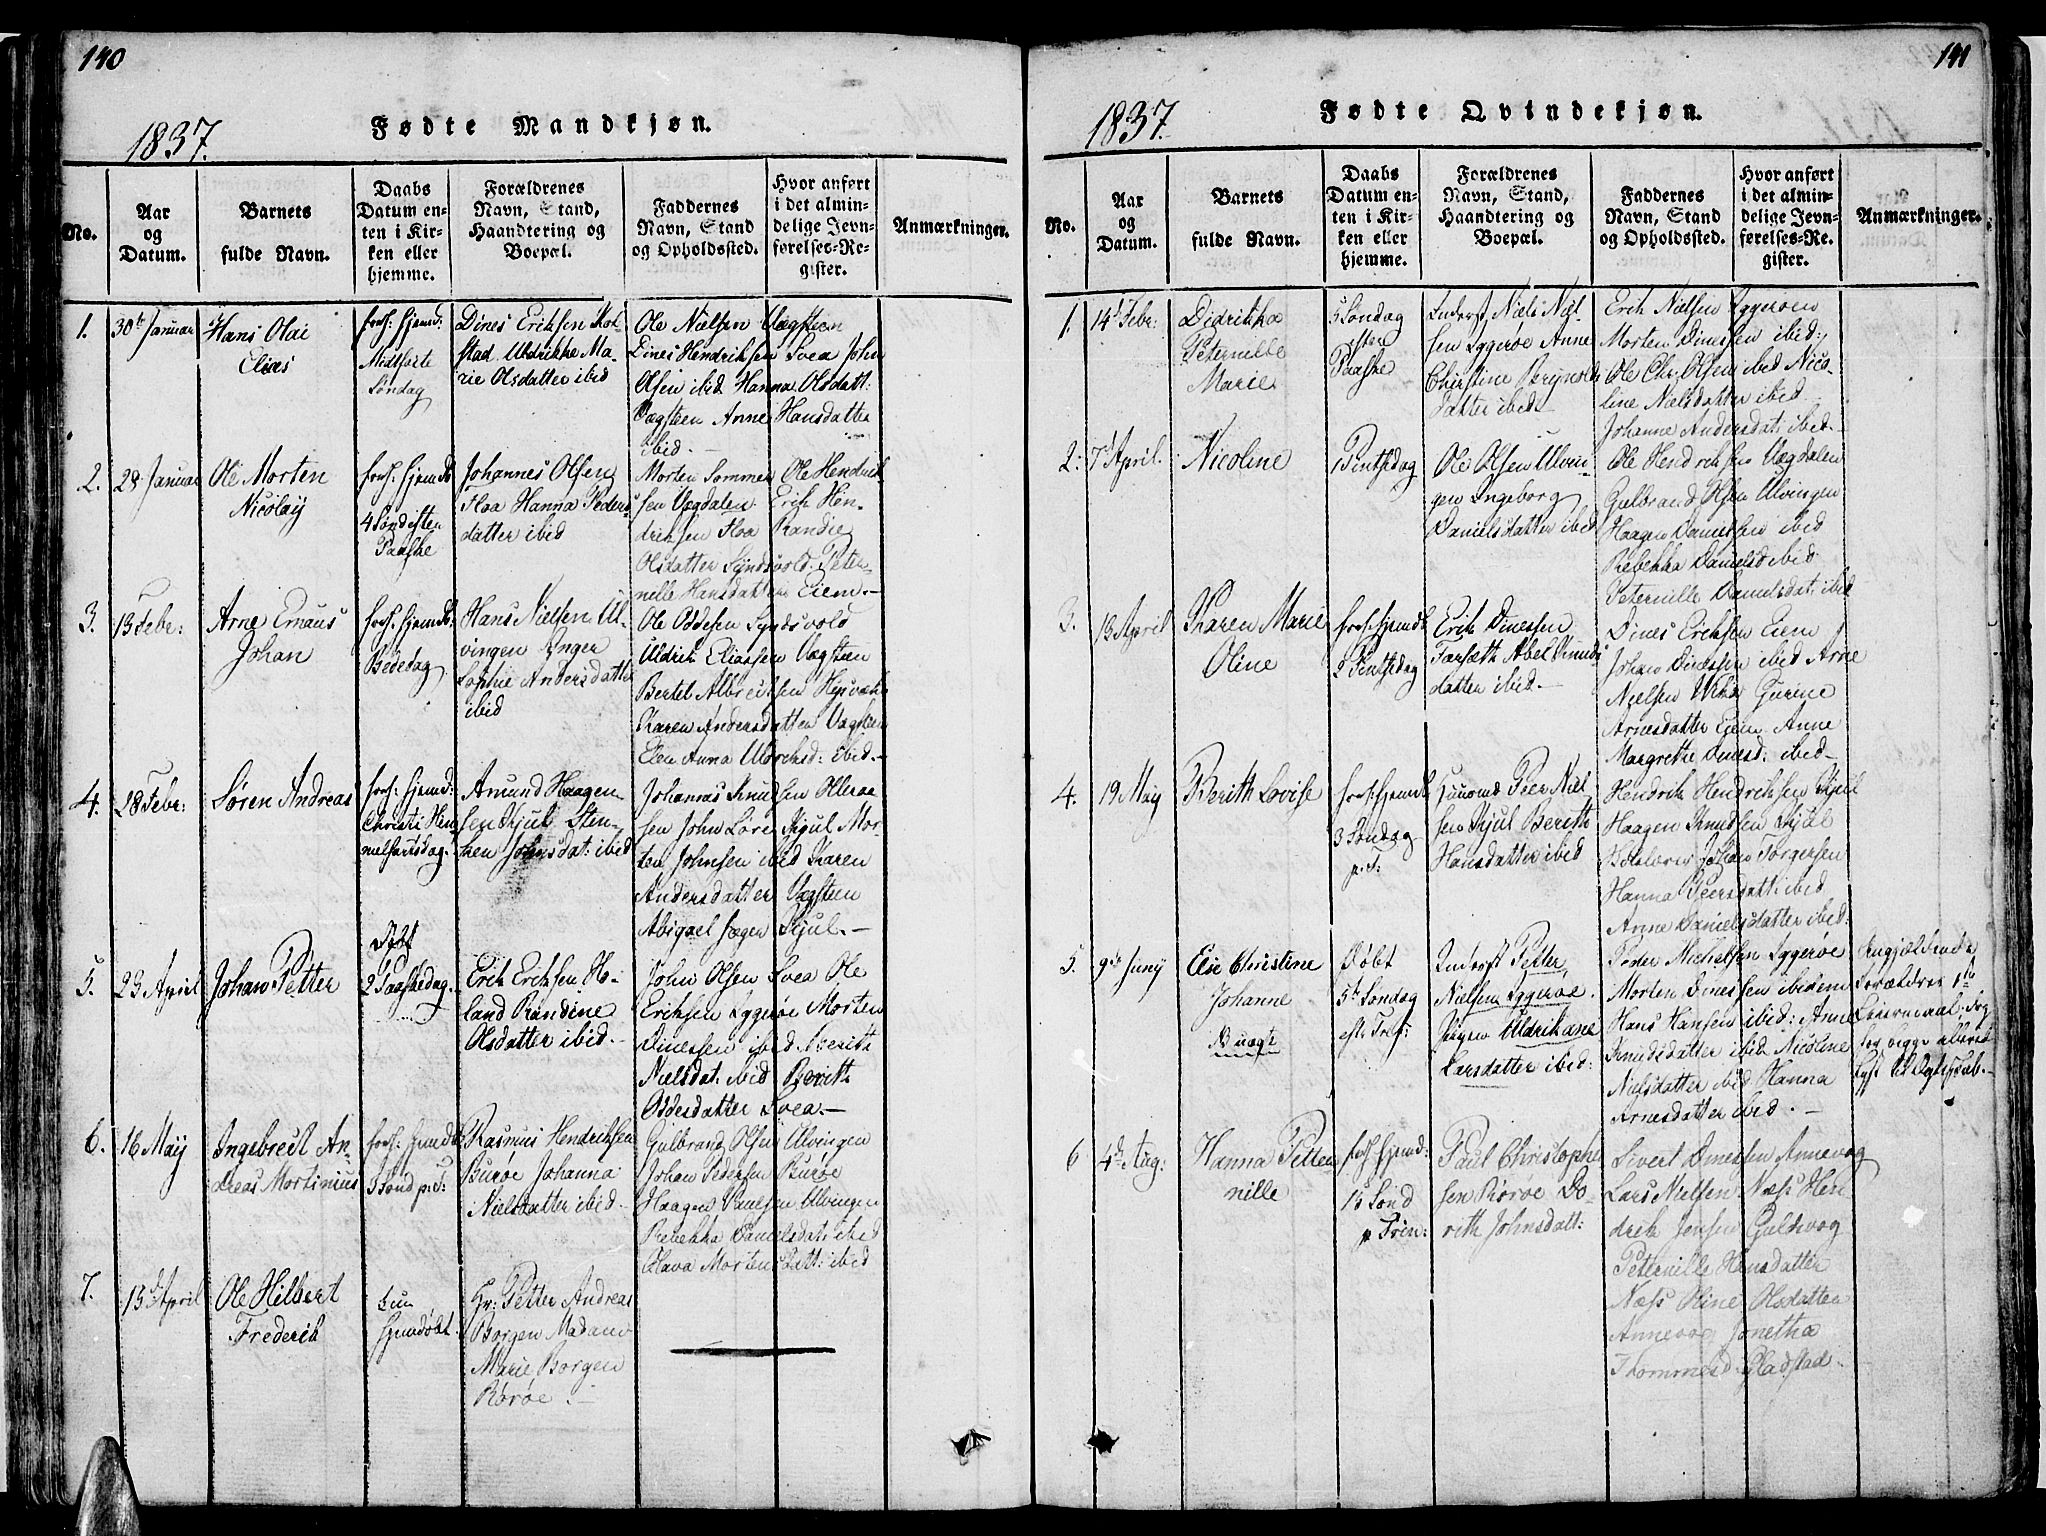 140
1837.
Fødte Mandkjøn.
No.
Aar og Datum.
Barnets fulde Navn.
Daabs Datum enten i Kirken eller hjemme.
Forældrenes Navn, Stand, Haandtering og Boepæl.
Faddernes Navn, Stand og Opholdssted.
Hvor anført i det almindelige Jevnførelses-Register.
Anmærkninger.
1.
30te Januar
Hans Olai
Elias
hjemd:
Midfaste
Søndag
Dines Eriksen Hol-
stad Uldrikke Ma-
rie Olsdatter ibid
Ole Nielsen Vægsteen
Dines Hendriksen Svea John
Olsen ibid Hanna Olsdatt:
Vægsteen Anne Hansdatter
ibid.
2.
28 Januar
Ole Morten
Nicolay
hjemdb
4 Søndefter
Paaske
Johannes Olsen
Floa Hanna Peders
datter ibid
Morten Sommer Ole Hendrik
sen Vægdalen Erik Hen-
driksen Floa Randie
Olsdatter Syndsvold Peter-
nille Hansdatter Eiem.-
3.
13 Febr:
Arne Emaus
Johan
hjemdb:
Bededag
Hans Nielsen Ul-
vingen Inger
Sophie Andersdatter
ibid
Ole Oddesen Syndsvold
Uldrik Eliassen Vægsteen
Bertel Albreitsen
Karen Andersdatter Vægsteen
Elen Anna Uldrichsd: ibid.-
4.
28 Febr:
Søren Andreas
hjemd:
Christi Him
melfartsdag.
Amund Haagen
sen Kjul Sten-
ken Johnsdat: ibid
Johannes Knudsen
sen John Sigul Mor
ten Johnsen ibid Karen
Andersdatter Vægsteen
Abigael Kjul.-
5.
23 April
Johan Petter
Døbt
2 Paaskedag.
Erik Eriksen Ho-
land Randine
Olsdatter ibid.-
John Olsen Svea Ole
Eriksen Lygerøe Morten
Dinessen ibid. Berith
Nielsdat. ibid Berith
Oddesdatter Svea.-
6.
16 May
Ingebrect An-
dreas Mortinius
hjemdb
Sønd p: T:
Rasmus Hendriksen
Burøe Johanna
Nielsdatter ibid.
Gulbrand Olsen Ulvingen
Johan Pedersen Burøe
Haagen Ulvingen
Rebekka Danielsdat: ibid
Olava Mortensdatt: ibid
7.
13de April
Ole Hilbert
Frederik
kun
hjemdøbt
Hr: Petter Andreas
Borgen Madam
Marie Borgen
Rørøe.-
141
1837.
Fødte Qvindekjøn.
No.
Aar og Datum.
Barnets fulde Navn.
Daabs Datum enten i Kirken eller hjemme.
Forældrenes Navn, Stand, Haandtering og Boepæl.
Faddernes Navn, Stand og Opholdssted.
Hvor anført i det almindelige Jevnførelses-Register.
Anmærkninger.
1.
14d Febr:
Didrikka
Peternille
Marie
5 Søndag
efter
Paaske
Inderst Niels Niel-
sen Lygerøe Anne
Christine Brynolds
datter ibid.-
Erik Nielsen Lygerøen
Morten Dinessen ibid:
Ole Chr: Olsen ibid Nico-
line Nielsdatter ibid
Johanne Andersdat: ibid.-
2.
7d April.
Nicoline
Pintsedag
Ole Olsen Ulvin-
gen Ingeborg
Danielsdatter ibid
Ole Hendriksen Vægdalen
Gulbrand Olsen Ulvingen
Haagen Danielsen ibid
Rebekka Danielsd ibid
Peternille Danielsdat: ibid
3.
13 April
Karen Marie
Oline
hjemdb
2 Pintsedag
Erik Dinessen
Forsæth Abel Knuds
datter ibid.-
Dines Erichsen Eiem
Johan Dinessen ibid Arne
Nielsen Gurine
Arnesdatter Eiem Anne
Margrethe Dinesd: ibid-
4.
19 May
Berith Lovise
hjemdb
3 Søndag
p: T:
Huusmd Peer Niel
sen Kjul Berith
Hansdatter ibid
Hendrik Hendriksen Kjul
Haagen Knudsen Kjul
Johan Torgersen
Hanna Peersdatt: ibid
Anne Danielsdatter ibid:
5.
9de Juny
Else Christine
Johanne
Døbt
5te Søndag
eft: Tref:
Inderst Petter
Nielsen Lygerøe.
Pigen Uldrikane
Larsdatter ibid:
Peder Michelsen Lygerøe
Morten Dinessen ibidem
Hans Hansen ibid: Anne
Knudsdatter ibid Nicoline
Nielsdatter ibid Hanna
Arnesdatter ibid.-
Forældres 1ste
Leiermaal.
begge
lyst til Ægteskab.-
6
4de Aug:
Hanna Petter
nille
hjemd:
15 Sønd
p Trin:
Paul Christophe
sen Rørøe Do-
reth Johnsdatt:
Sivert Dinessen Annevog
Lars Nielsen Næss Hen-
drik Jensen Guldvog
Peternille Hansdatter
Næss Oline Olsdatter
Annevog Jonetha
Thommesd. Gladstad.